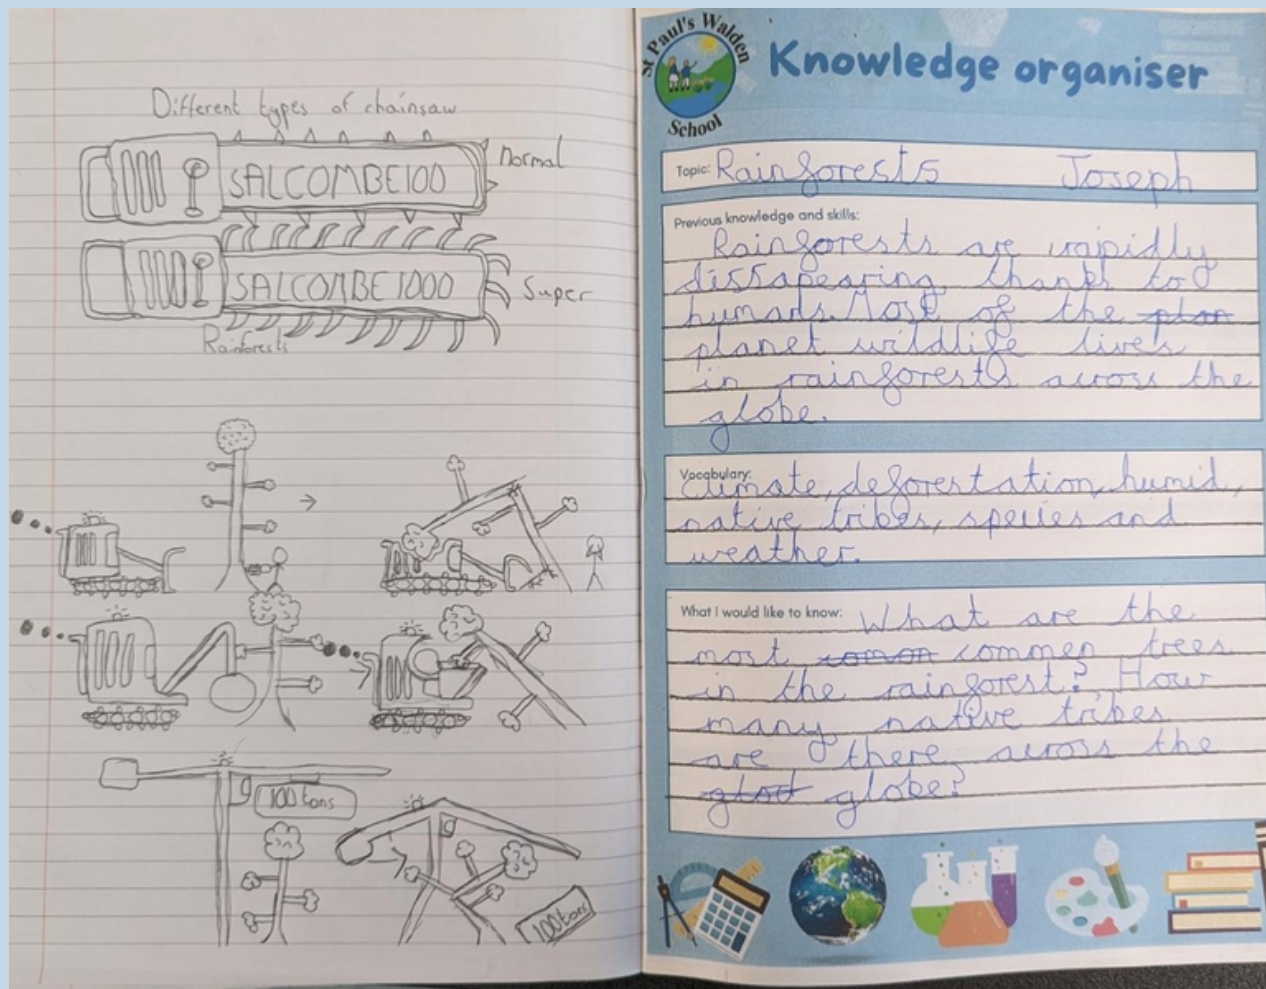 Different types of chainsaw
SALCOMBE 100
Normal
SALCOMBE 1000
Super
Rainforests
100 tons
100 tons
St Paul's Walden
School
Knowledge organiser
Topic: Rainforests Joseph
Previous knowledge and skills:
Rainforests are rapidly
dissapearing thanks to
humans. Most of the plan
planet wildlife lives
in rainforests across the
globe.
Vocabulary:
Climate, deforestation, humid,
native tribes, species and
weather.
What I would like to know: What are the
most comon commen trees
in the rainforest? How
many native tribes
are there across the
glod globe?